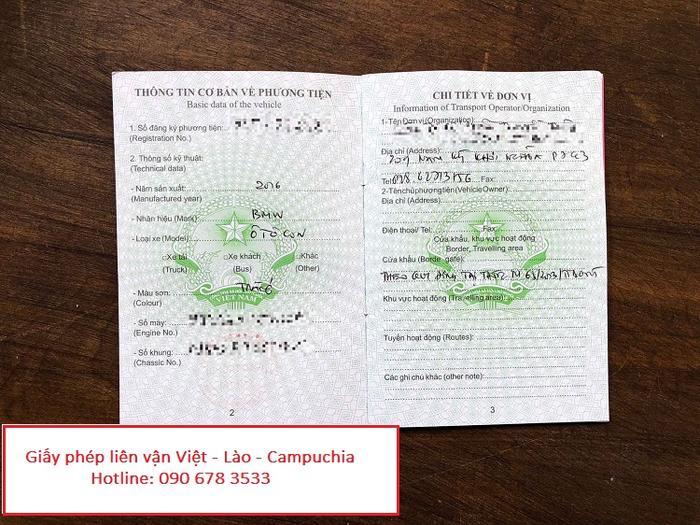 THÔNG TIN CƠ BẢN VỀ PHƯƠNG TIỆN
Basic data of the vehicle
1. Số đăng ký phương tiện:
(Registration No.)
2. Thông số kỹ thuật:
(Technical data)
- Năm sản xuất: 2016
(Manufactured year)
- Nhãn hiệu (Mark) BMW
- Loại xe (Model) Ô TÔ CON
□Xe tải □Xe khách □Khác
(Truck) (Bus) (Other)
VIỆT NAM
- Màu sơn: TRẮNG
(Colour)
- Số máy:
(Engine No.)
- Số khung:
(Chassic No.)
2
CHI TIẾT VỀ ĐƠN VỊ
Information of Transport Operator/Organization
1-Tên Đơn vị (Organization)
Địa chỉ (Address):
NAM KỲ KHỞI NGHĨA
Tel: Fax:
2-Tên chủ phương tiện (Vehicle Owner):
Địa chỉ (Address):
Điện thoại/ Tel: Fax:
Cửa khẩu, khu vực hoạt động
Border, Travelling area
Cửa khẩu (Borde gate):
THEO QUY ĐỊNH TẠI
Khu vực hoạt động (Travelling area)
Tuyến hoạt động (Routes):
Các ghi chú khác (other note):
3
Giấy phép liên vận Việt - Lào - Campuchia
Hotline: 090 678 3533